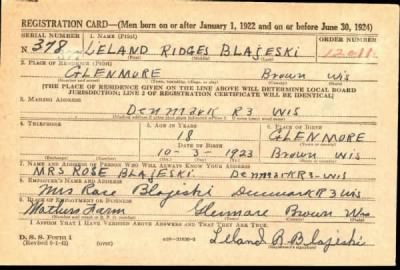 REGISTRATION CARD—(Men born on or after January 1, 1922 and on or before June 30, 1924)
SERIAL NUMBER 1. NAME (Print) ORDER NUMBER
N 378 LELAND RIDGES BLAJESKI 12011
(First) (Middle) (Last)
2. PLACE OF RESIDENCE (Print)
GLENMORE Brown Wis
(Number and street) (Town, township, village, or city) (County) (State)
[THE PLACE OF RESIDENCE GIVEN ON THE LINE ABOVE WILL DETERMINE LOCAL BOARD
JURISDICTION; LINE 2 OF REGISTRATION CERTIFICATE WILL BE IDENTICAL]
3. MAILING ADDRESS
Denmark R3 WIS
4. TELEPHONE 5. AGE IN YEARS 6. PLACE OF BIRTH
18 GLENMORE
DATE OF BIRTH
10-3-1923 Brown Wis
(Exchange) (Number) (Mo.) (Day) (Yr.) (State or country)
7. NAME AND ADDRESS OF PERSON WHO WILL ALWAYS KNOW YOUR ADDRESS
MRS ROSE BLAJESKI Denmark R3-WIS
8. EMPLOYER'S NAME AND ADDRESS
Mrs Rose Blajeski Denmark R3 Wis
9. PLACE OF EMPLOYMENT OR BUSINESS
Mothers Farm Glenmore Brown Wis
(Number and street or R. F. D. number) (Town) (County) (State)
I AFFIRM THAT I HAVE VERIFIED ABOVE ANSWERS AND THAT THEY ARE TRUE.
D. S. S. FORM 1
(Revised 6-1-42) (over)
Leland R Blajeski